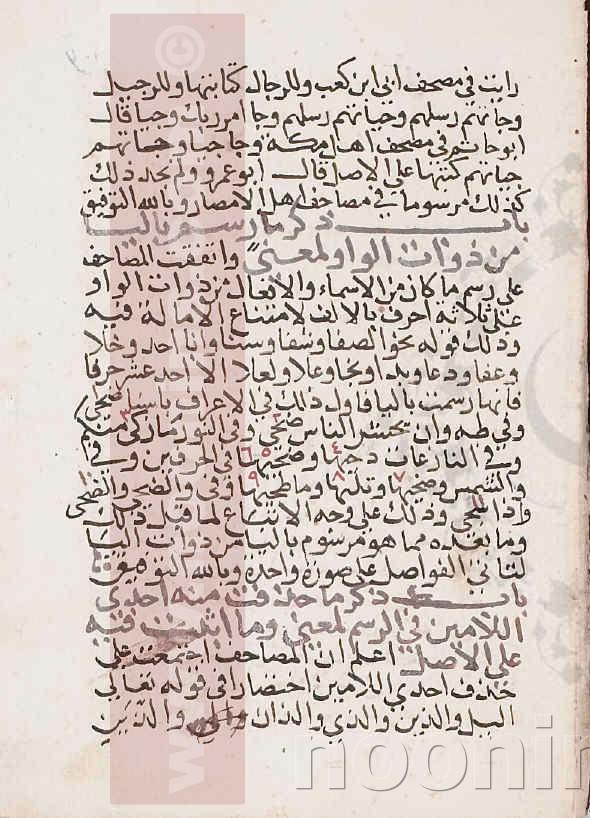 رايت في مصحف ابي ابن كعب وللرجال كتابتها وللرجيل
وجاتهم رسلهم وجياتهم رسلهم وجا امر ربك وجيا قال
ابو حاتم في مصحف اهل مكه وجا وجيا وجياتهم
جياتهم كتبتها على الاصل قال ابو عمرو ولم نجد ذلك
كذلك مرسوما في مصاحف اهل الامصار وبالله التوفيق
باب ذكر ما رسم باليا
من ذوات الواو لمعنى واتفقت المصاحف
على رسم ما كان من الاسماء والافعال من ذوات الواو
على ثلاثة احرف بالالف لامتناع الامالة فيه
وذلك قوله نحو الصفا وشفا وسنا وابا احد وخلا
وعفا ودعا وبدا ونجا وعلا ولعلا الا احد عشر حرفا
فانها رسمت باليا فاول ذلك في الاعراف باسنا ضحى
وفي طه وان يحشر الناس ضحى وفي النور ما زكى منكم
وفي النازعات دحيها وضحيها في الحرفين وفي
والشمس وضحيها وتليها وما طحيها وفي والضحى والضحى
واذا سجى وذلك على وجه الاتباع لما قبل ذلك
وما بعده مما هو مرسوم باليا من ذوات اليا
لتاتي الفواصل على صورة واحده وبالله التوفيق
باب ذكر ما حذفت منه احدى
اللامين في الرسم لمعنى وما اثبتت فيه
على الاصل اعلم ان المصاحف اجتمعت على
حذف احدي اللامين اختصارا في قوله تعالى
اليل والذين والذي والذان والذين
www
noorin